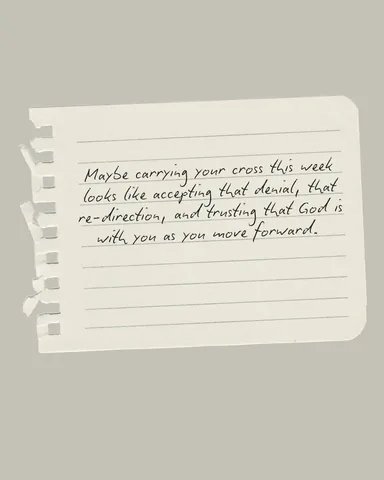 Maybe carrying your cross this week
looks like accepting that denial, that
re-direction, and trusting that God is
with you as you move forward.